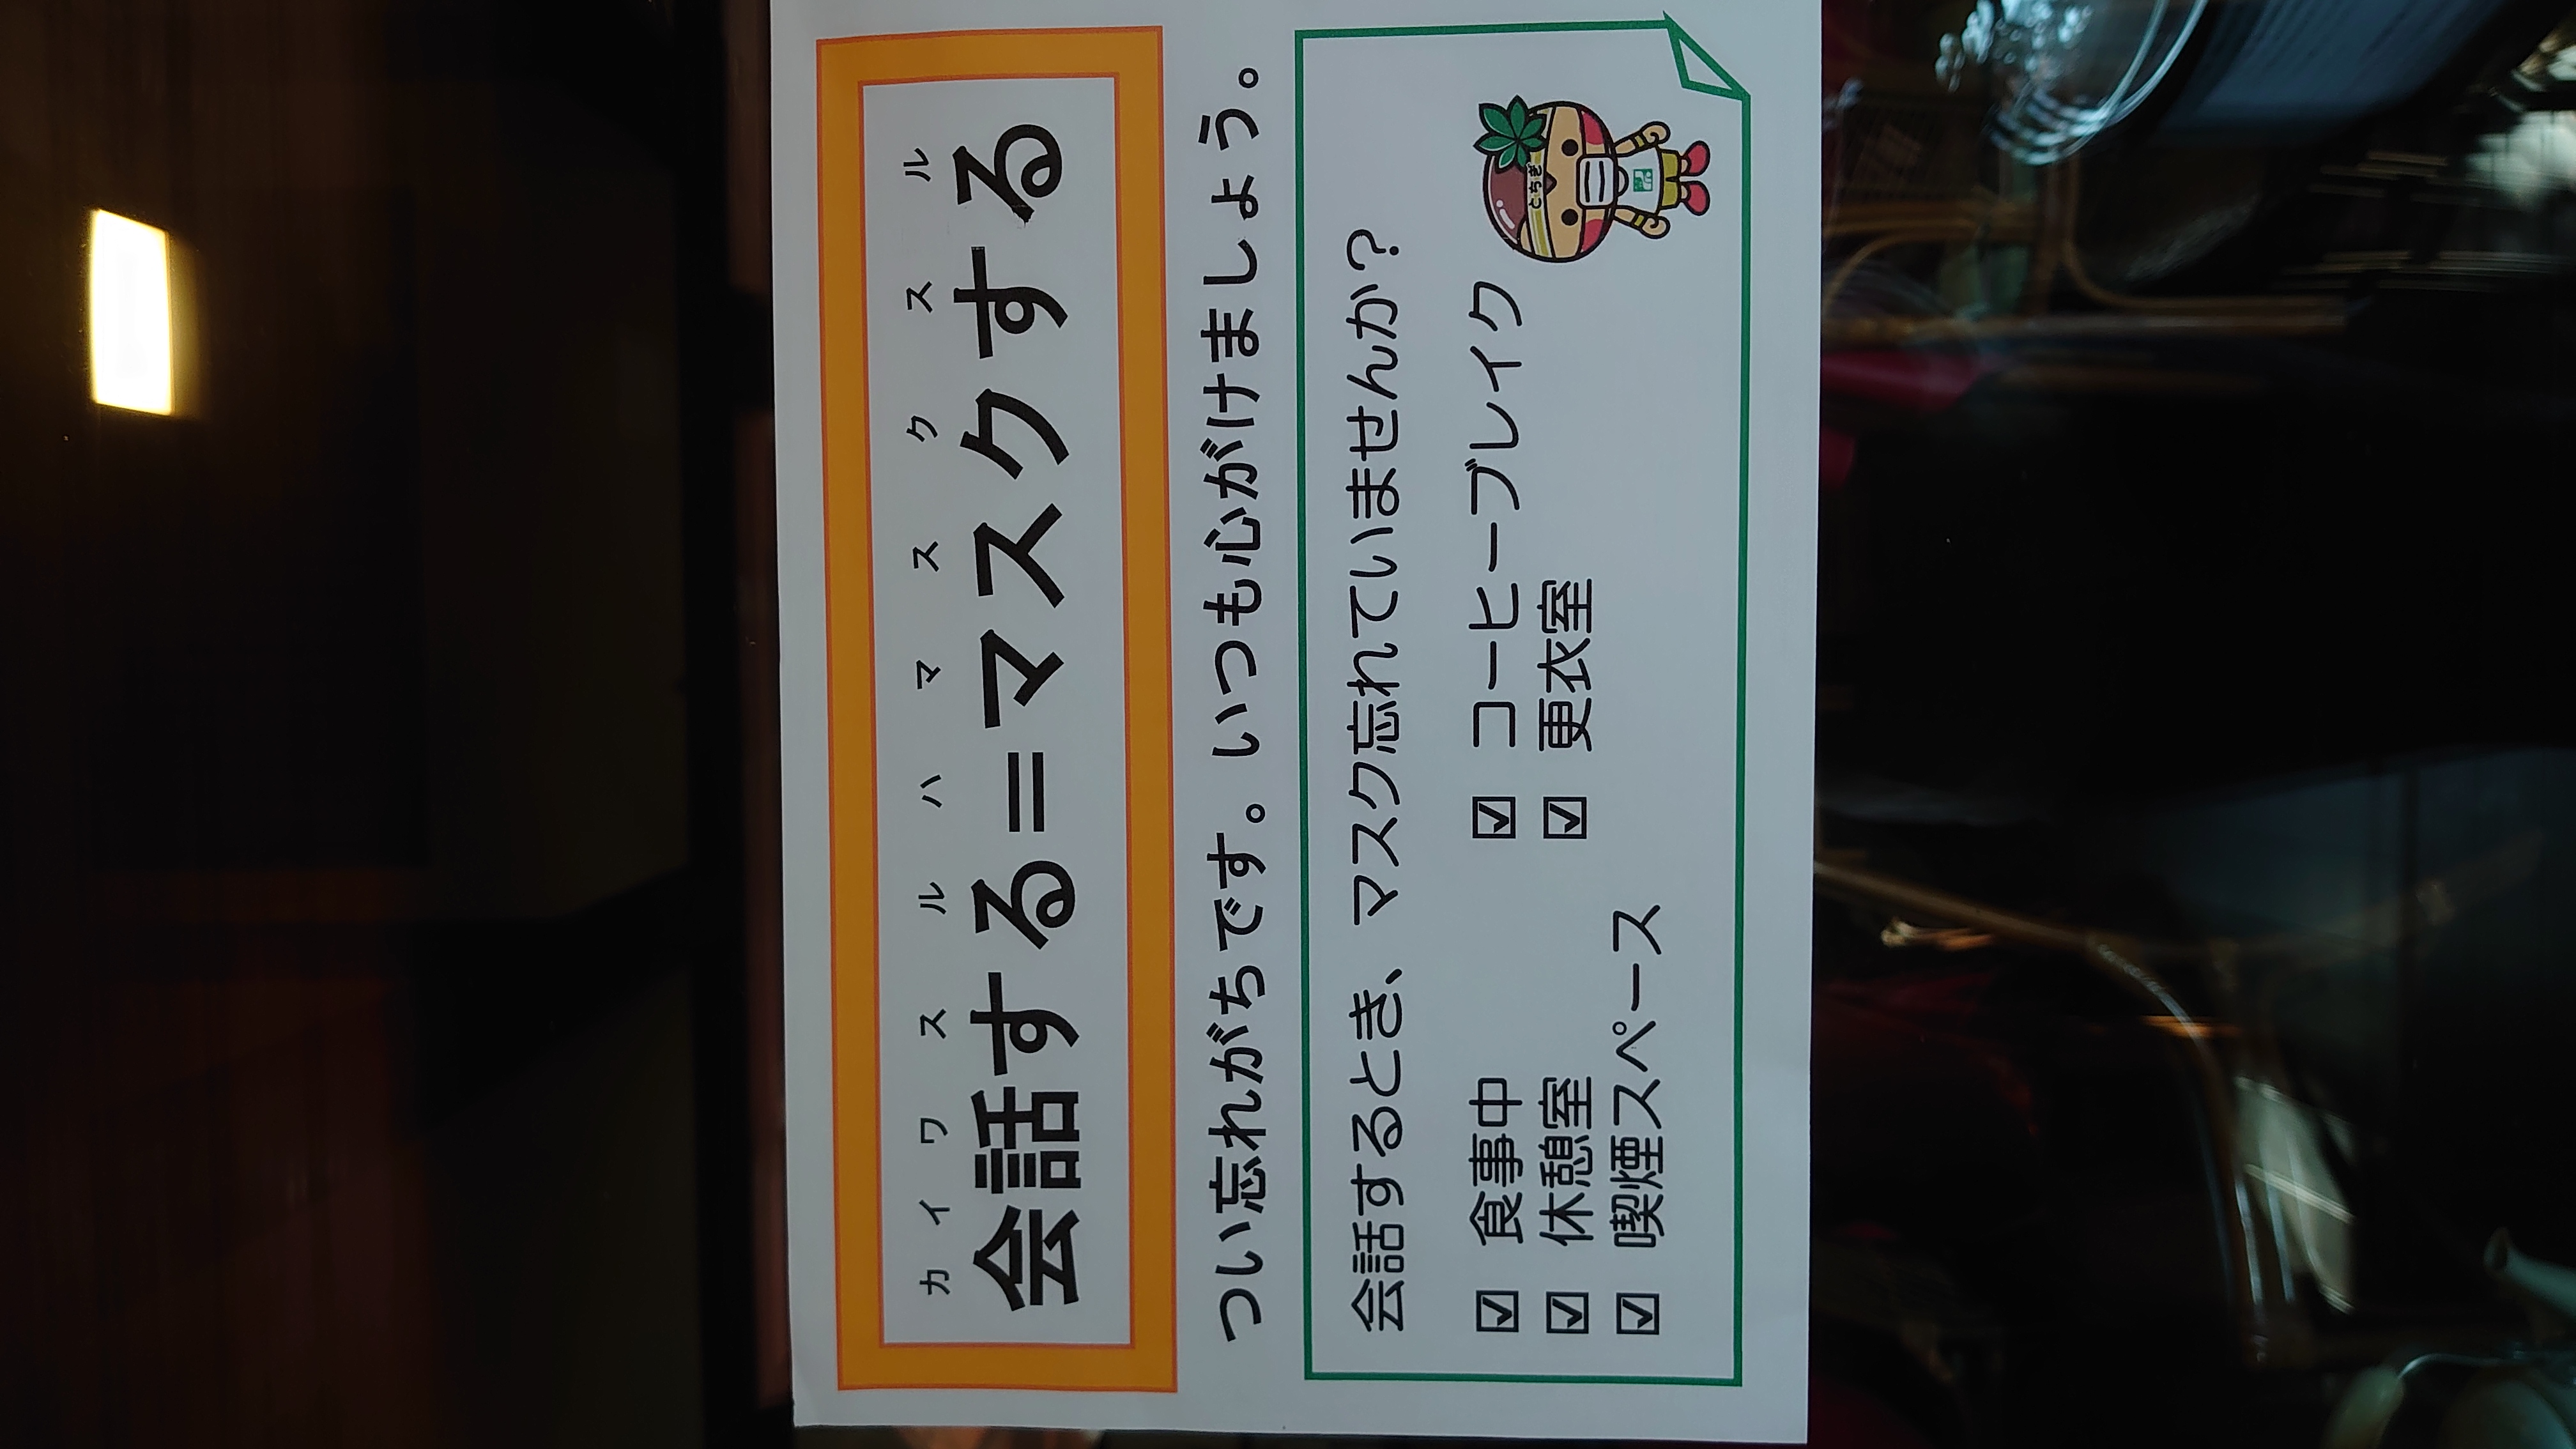 カイワスルハマスクスル
会話する＝マスクする
つい忘れがちです。いつも心がけましょう。
会話するとき、マスク忘れていませんか？
☑ 食事中 ☑ コーヒーブレイク
☑ 休憩室 ☑ 更衣室
☑ 喫煙スペース
とちぎ